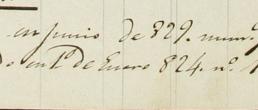 en Junio de 829. num.
o en 1º de Enero 824. nº 1